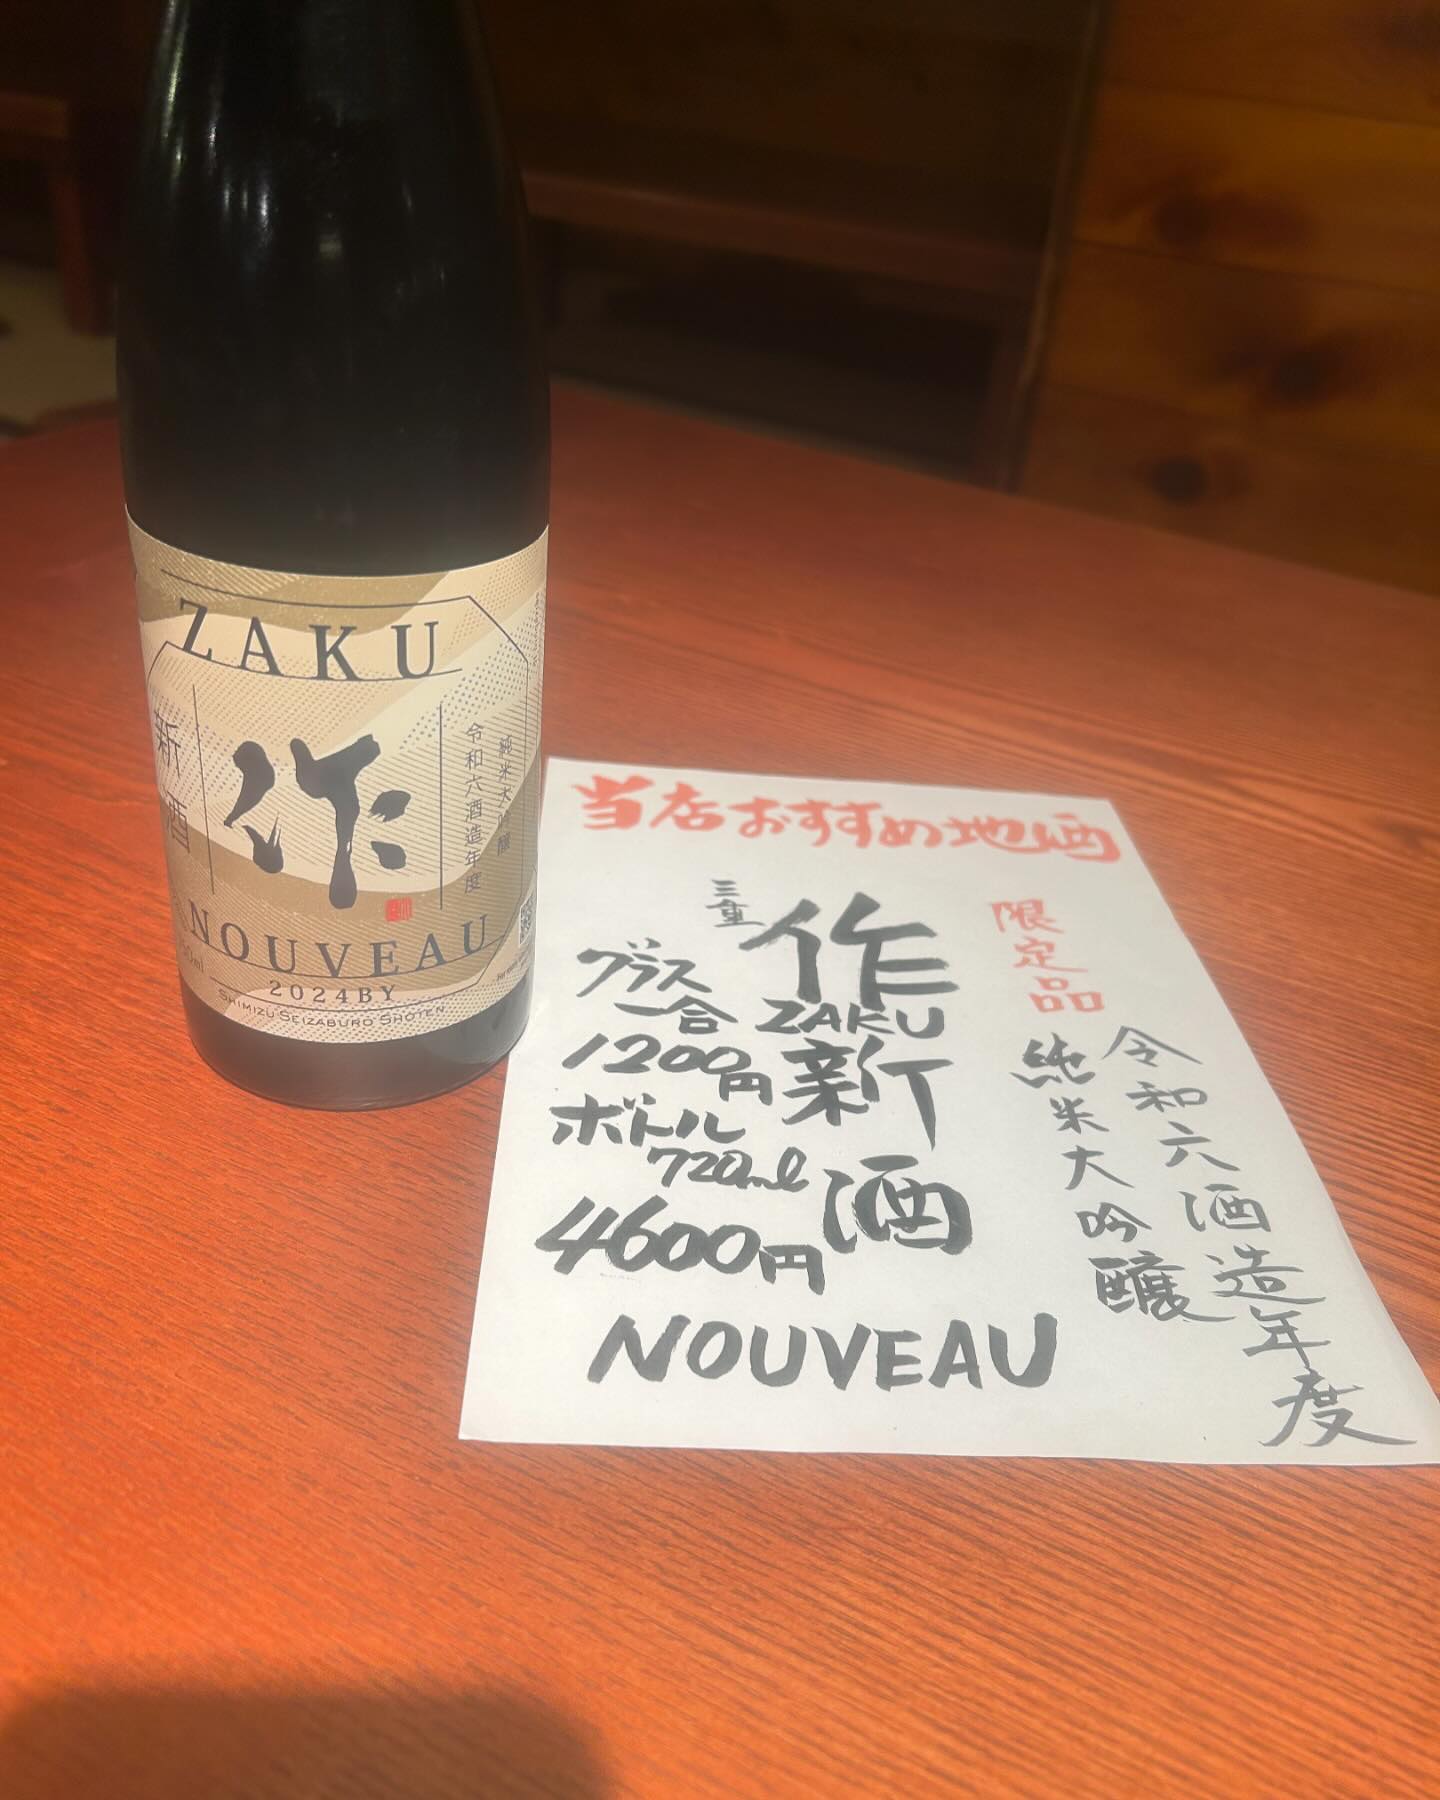 ZAKU
新酒
作
純米大吟醸
令和六酒造年度
NOUVEAU
2024BY
SHIMIZU SEIZABURO SHOTEN
当店おすすめ地酒
限定品
三重
作
ZAKU
新酒
令和六酒造年度
純米大吟醸
グラス
一合
1200円
ボトル
720ml
4600円
NOUVEAU